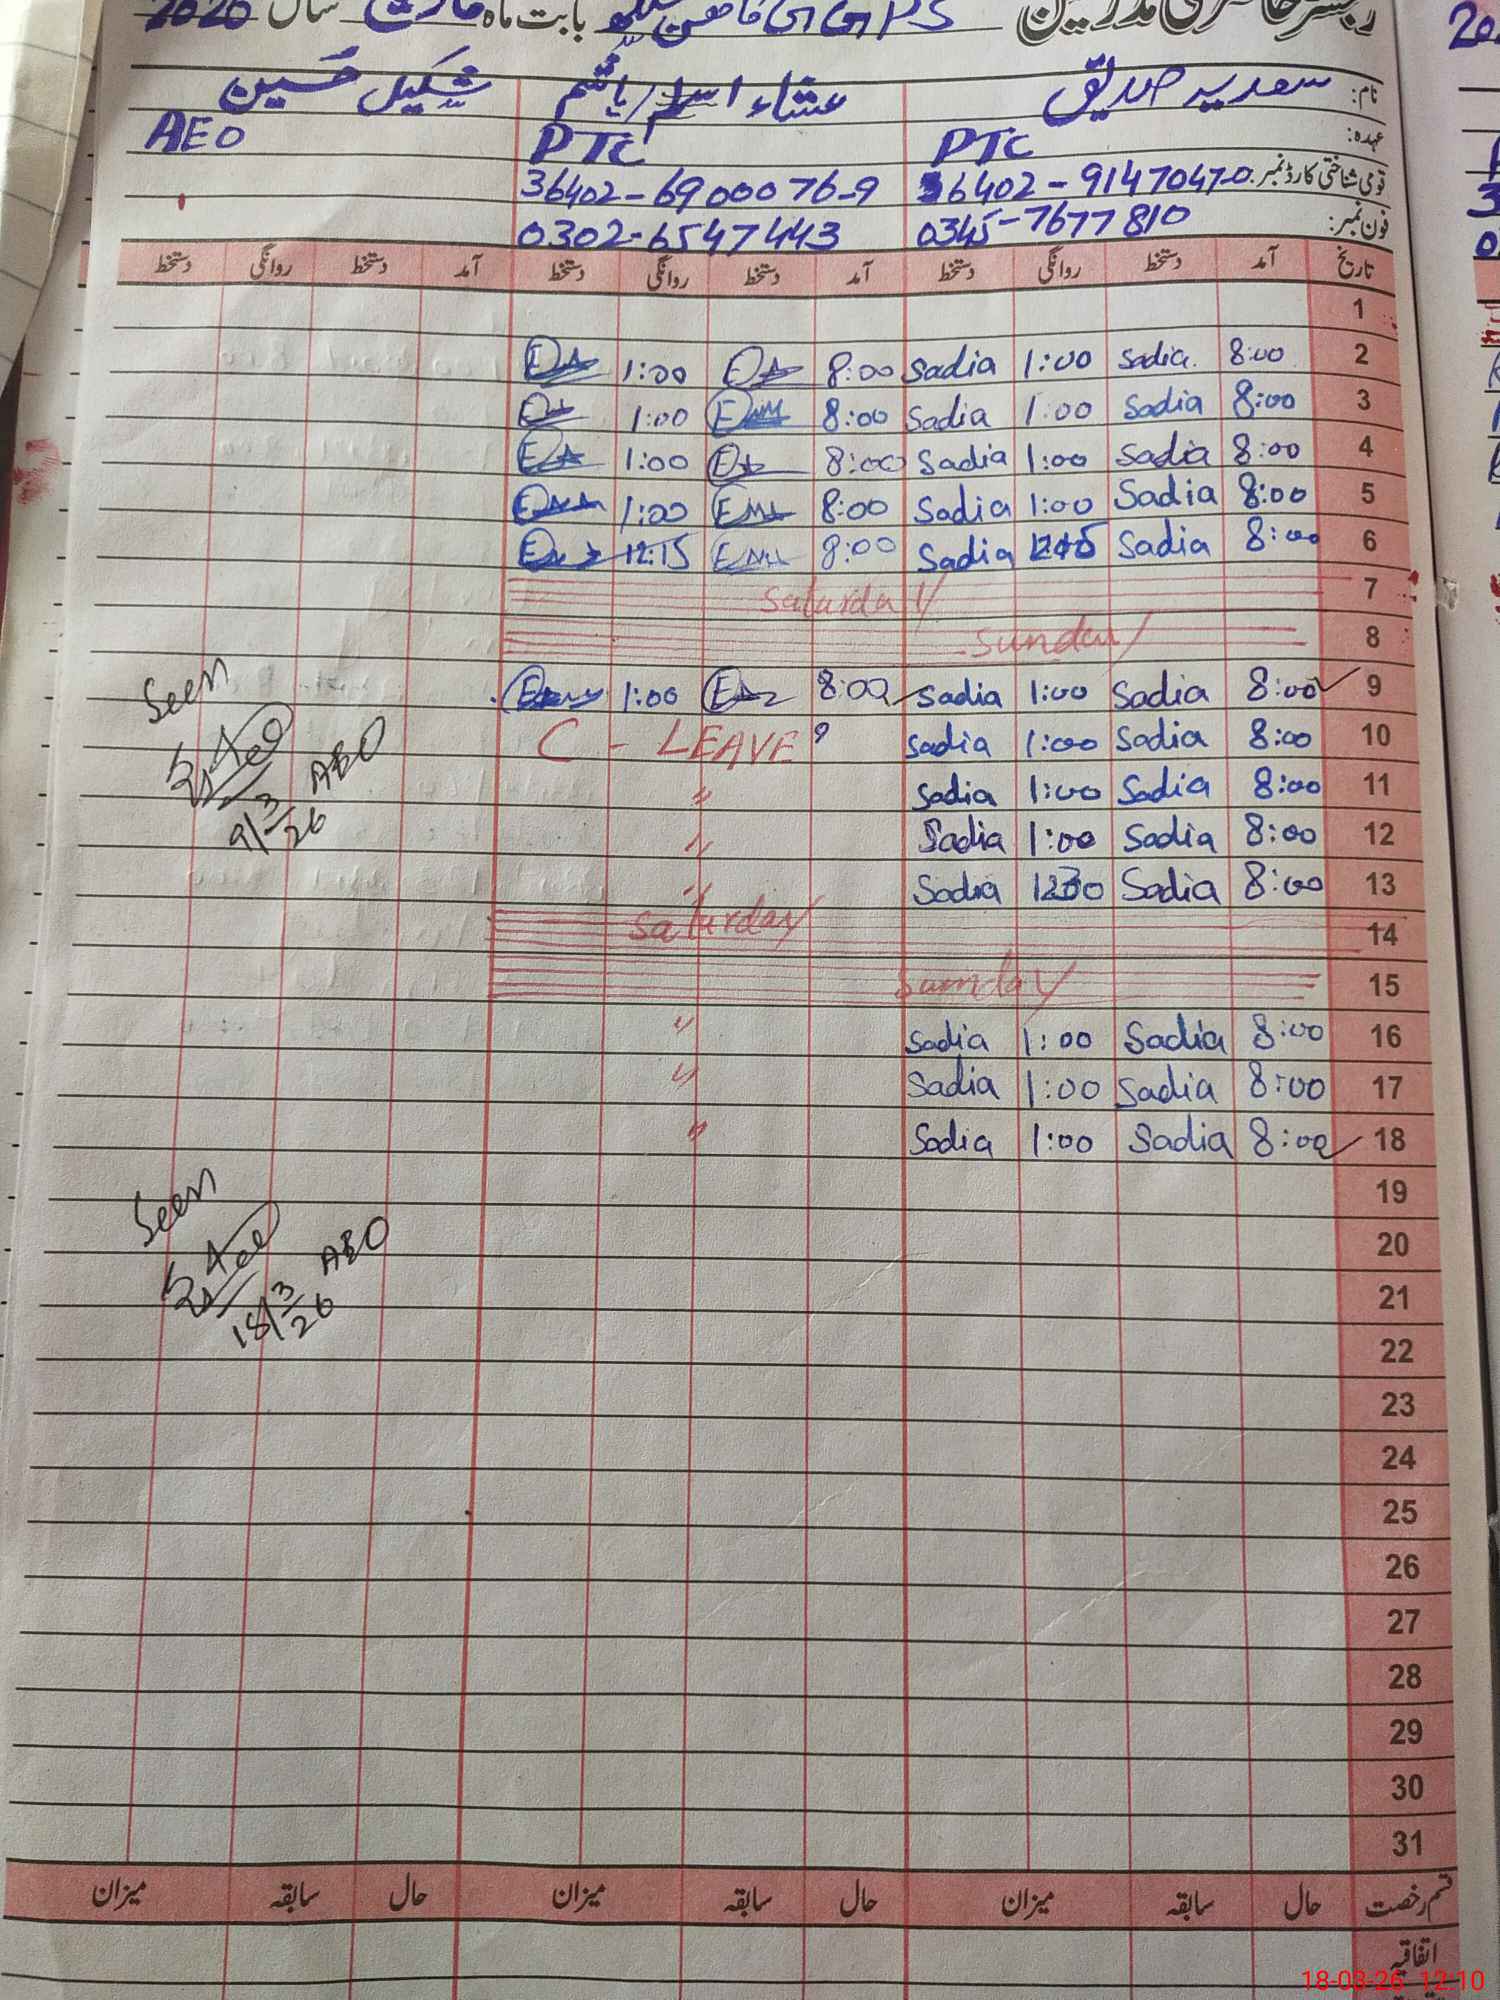 رجسٹر حاضری مدرسین GGPS بابت ماہ مارچ سال
نام: سعدیہ صدیق عشاء اسلم / ہاشم شکیل حسین
عہدہ: PTC PTC AEO
قومی شناختی کارڈ نمبر: 36402-9147047-0 36402-6900076-9
فون نمبر: 0345-7677810 0302-6547443
تاریخ آمد دستخط روانگی دستخط آمد دستخط روانگی دستخط آمد دستخط روانگی دستخط
1
2 8:00 Sadia. 1:00 Sadia 8:00 1:00
3 8:00 Sadia 1:00 Sadia 8:00 1:00
4 8:00 Sadia 1:00 Sadia 8:00 1:00
5 8:00 Sadia 1:00 Sadia 8:00 1:00
6 8:00 Sadia Sadia 8:00 12:15
7 Saturday
8 Sunday
9 8:00 Sadia 1:00 Sadia 8:00 1:00
Seen
AEO
9/3/26
10 8:00 Sadia 1:00 Sadia C - LEAVE
11 8:00 Sadia 1:00 Sadia "
12 8:00 Sadia 1:00 Sadia "
13 8:00 Sadia Sadia "
14 Saturday
15 Sunday
16 8:00 Sadia 1:00 Sadia "
17 8:00 Sadia 1:00 Sadia "
18 8:00 Sadia 1:00 Sadia "
Seen
AEO
18/3/26
19
20
21
22
23
24
25
26
27
28
29
30
31
قسم رخصت حال سابقہ میزان حال سابقہ میزان حال سابقہ میزان
اتفاقیہ
18-03-26 12:10